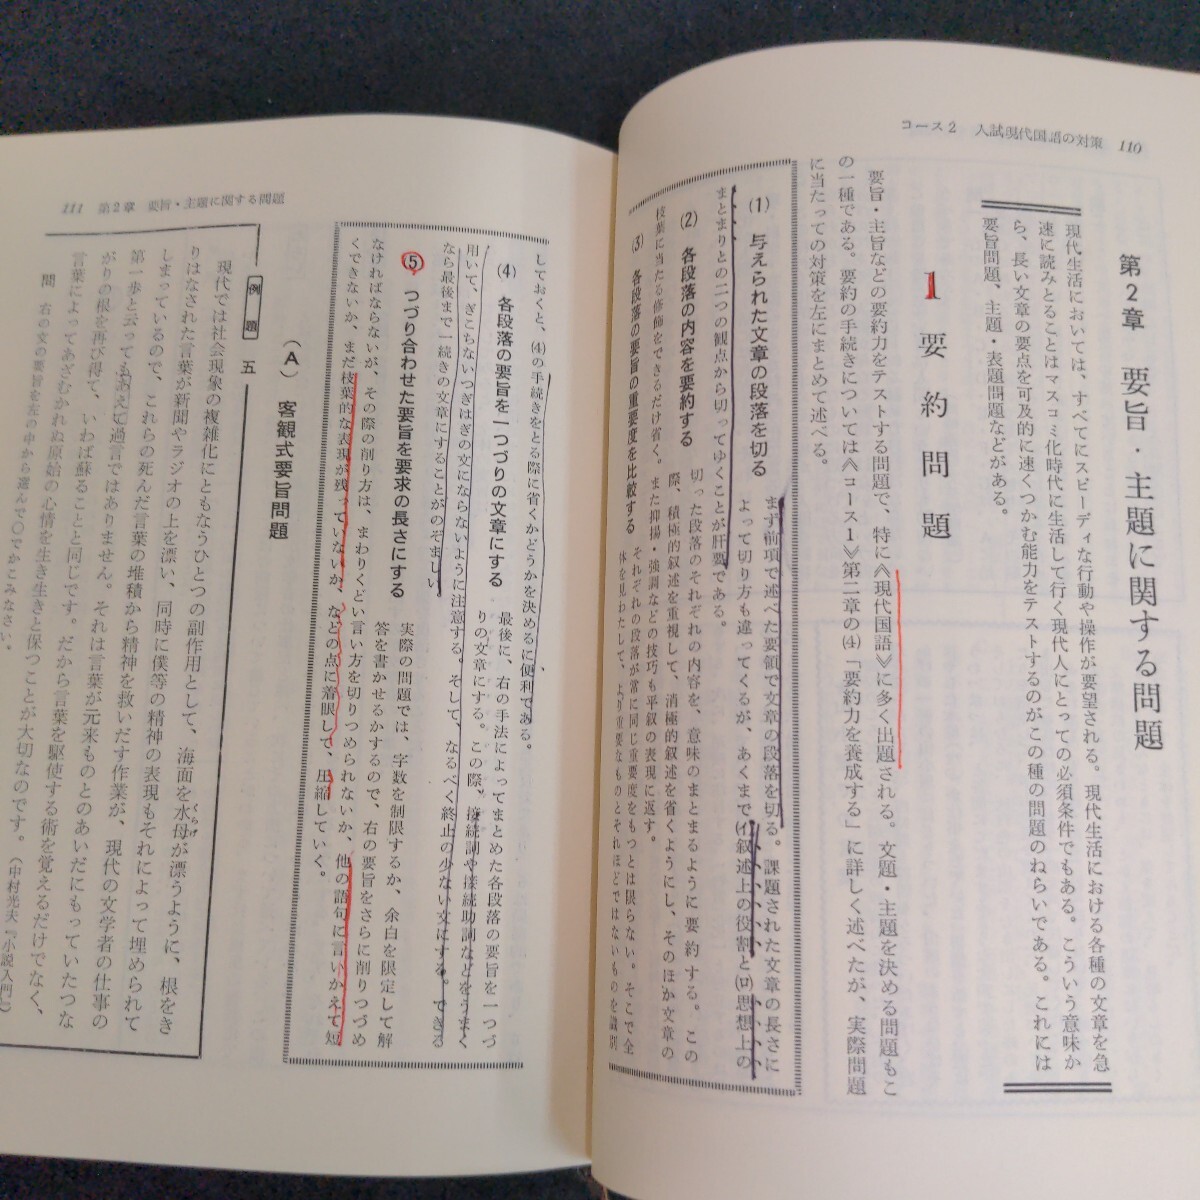 コース2　入試現代国語の対策　110
第2章　要旨・主題に関する問題
現代生活においては、すべてにスピーディな行動や操作が要望される。現代生活における各種の文章を急
速に読みとることはマスコミ化時代に生活して行く現代人にとっての必須条件でもある。こういう意味か
ら、長い文章の要点を可及的に速くつかむ能力をテストするのがこの種の問題のねらいである。これには
要旨問題、主題・表題問題などがある。
1　要約問題
要旨・主旨などの要約力をテストする問題で、特に《現代国語》に多く出題される。文題・主題を決める問題もこ
の一種である。要約の手続きについては《コース1》第二章の(4)「要約力を養成する」に詳しく述べたが、実際問題
に当たっての対策を左にまとめて述べる。
(1)　与えられた文章の段落を切る　まず前項で述べた要領で文章の段落を切る。課題された文章の長さに
よって切り方も違ってくるが、あくまで(イ)叙述上の役割と(ロ)思想上の
まとまりとの二つの観点から切ってゆくことが肝要である。
(2)　各段落の内容を要約する　切った段落のそれぞれの内容を、意味のまとまるように要約する。この
際、積極的叙述を重視して、消極的叙述を省くようにし、そのほか文章の
枝葉に当たる修飾をできるだけ省く。また抑揚・強調などの技巧も平叙の表現に返す。
(3)　各段落の要旨の重要度を比較する　それぞれの段落が常に同じ重要度をもつとは限らない。そこで全
体を見わたして、より重要なものとそれほどではないものを識別
111　第2章　要旨・主題に関する問題
しておくと、(4)の手続きをとる際に省くかどうかを決めるに便利である。
(4)　各段落の要旨を一つづりの文章にする　最後に、右の手法によってまとめた各段落の要旨を一つづ
りの文章にする。この際、接続詞や接続助詞などをうまく
用いて、ぎこちないつぎはぎの文にならないように注意する。そして、なるべく終止の少ない文にする。できる
なら最後まで一続きの文章にすることがのぞましい。
(5)　つづり合わせた要旨を要求の長さにする　実際の問題では、字数を制限するか、余白を限定して解
答を書かせるかするので、右の要旨をさらに削りつづめ
なければならないが、その際の削り方は、まわりくどい言い方を切りつめられないか、他の語句に言いかえて短
くできないか、まだ枝葉的な表現が残っていないか、などの点に着眼して、圧縮していく。
(A)　客観式要旨問題
例題　五
現代では社会現象の複雑化にともなうひとつの副作用として、海面を水母が漂うように、根をき
くらげ
りはなされた言葉が新聞やラジオの上を漂い、同時に僕等の精神の表現もそれによって埋められて
しまっているので、これらの死んだ言葉の堆積から精神を救いだす作業が、現代の文学者の仕事の
第一歩と云ってもあえて過言ではありません。それは言葉が元来ものとのあいだにもっていたつな
がりの根を再び得て、いわば蘇ることと同じです。だから言葉を駆使する術を覚えるだけでなく、
言葉によってあざむかれぬ原始の心情を生き生きと保つことが大切なのです。（中村光夫『小説入門』）
問　右の文の要旨を左の中から選んで〇でかこみなさい。